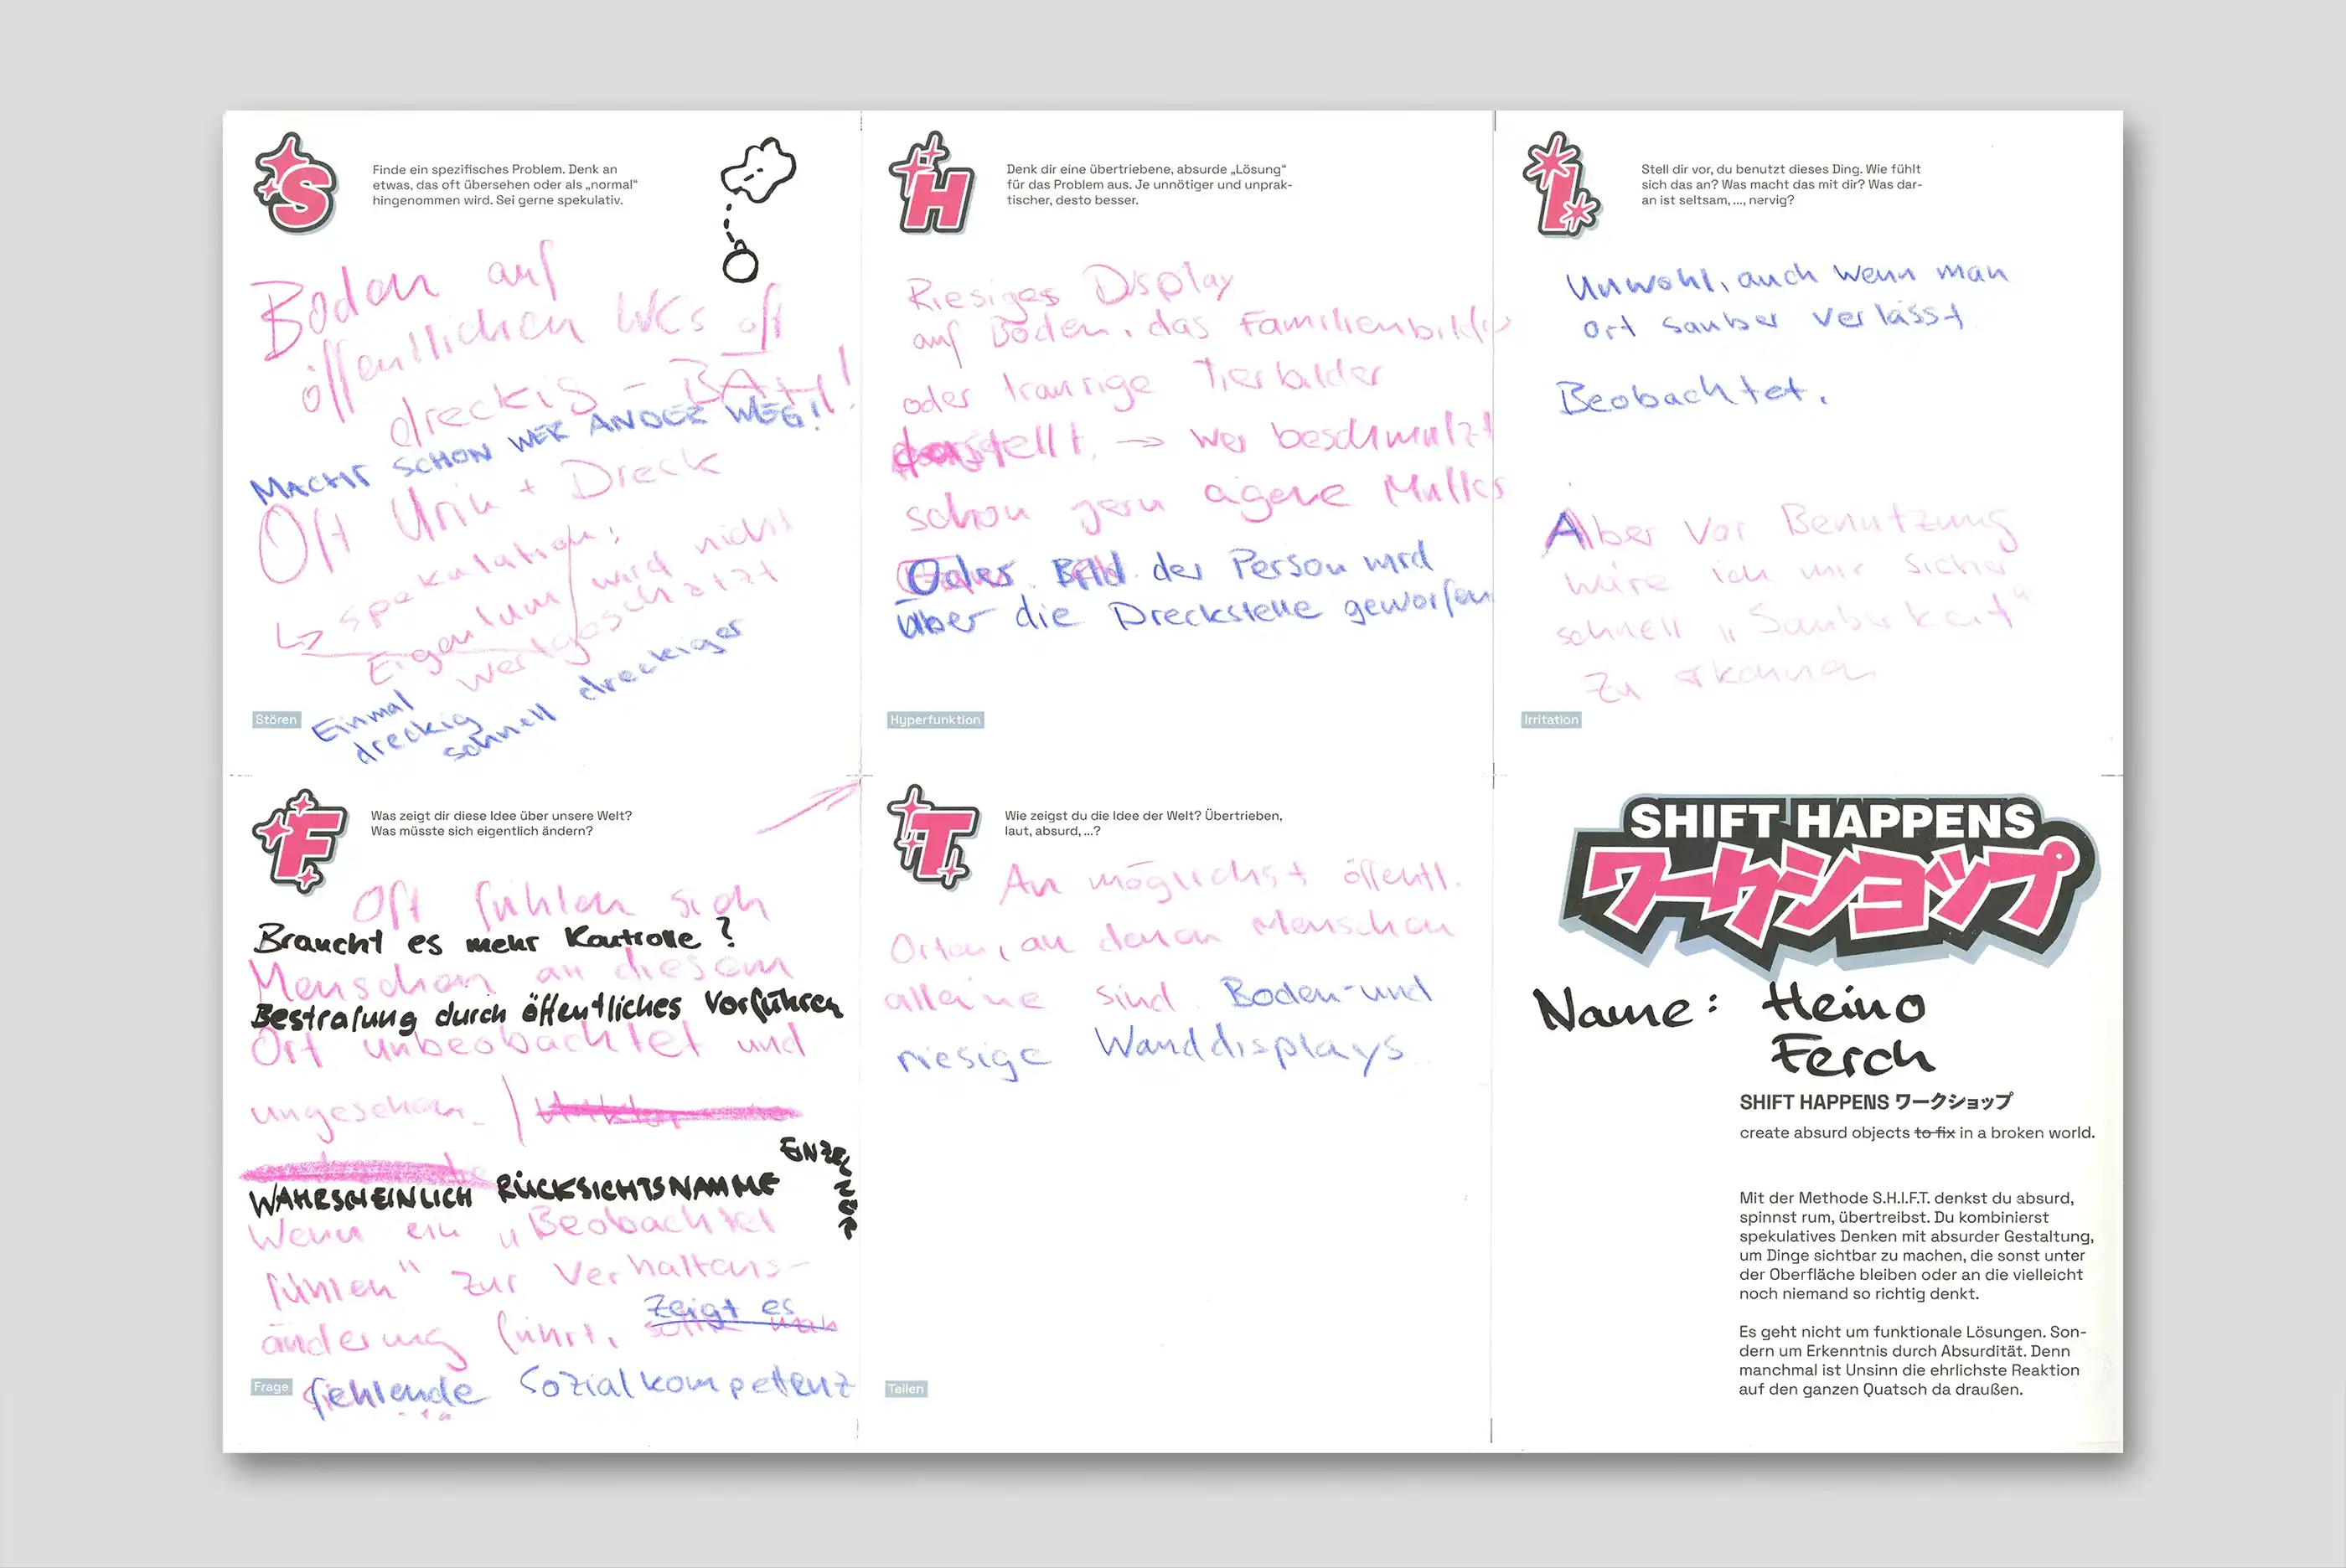 S
Finde ein spezifisches Problem. Denk an
etwas, das oft übersehen oder als „normal“
hingenommen wird. Sei gerne spekulativ.
Boden auf
öffentlichen WCs oft
dreckig – BÄH!
MACHT SCHON WER ANDER WEG!!
Oft Urin + Dreck
↳ Spekulation:
Eigentum wird nicht
wertgeschätzt
Einmal
dreckig
schnell dreckiger
Stören
H
Denk dir eine übertriebene, absurde „Lösung“
für das Problem aus. Je unnötiger und unprak-
tischer, desto besser.
Riesiges Display
auf Boden, das Familienbilder
oder traurige Tierbilder
darstellt. → wer beschmutzt
schon gern eigene Mutter
Oder Bild der Person wird
über die Dreckstelle geworfen
Hyperfunktion
I
Stell dir vor, du benutzt dieses Ding. Wie fühlt
sich das an? Was macht das mit dir? Was dar-
an ist seltsam, ..., nervig?
Unwohl, auch wenn man
Ort sauber verlässt
Beobachtet.
Aber vor Benutzung
wäre ich mir sicher
schnell „Sauberkeit“
zu erkennen
Irritation
F
Was zeigt dir diese Idee über unsere Welt?
Was müsste sich eigentlich ändern?
Oft fühlen sich
Braucht es mehr Kontrolle?
Menschen an diesem
Bestrafung durch öffentliches Vorführen
Ort unbeobachtet und
ungesehen.
WAHRSCHEINLICH RÜCKSICHTSNAMME
Wenn ein „Beobachtet
fühlen“ zur Verhaltens-
änderung führt,
zeigt es
fehlende Sozialkompetenz
Frage
T
Wie zeigst du die Idee der Welt? Übertrieben,
laut, absurd, ...?
An möglichst öffentl.
Orten, an denen Menschen
alleine sind. Boden- und
riesige Wanddisplays
Teilen
SHIFT HAPPENS
ワークショップ
Name: Heino
Ferch
SHIFT HAPPENS ワークショップ
create absurd objects to fix in a broken world.
Mit der Methode S.H.I.F.T. denkst du absurd,
spinnst rum, übertreibst. Du kombinierst
spekulatives Denken mit absurder Gestaltung,
um Dinge sichtbar zu machen, die sonst unter
der Oberfläche bleiben oder an die vielleicht
noch niemand so richtig denkt.
Es geht nicht um funktionale Lösungen. Son-
dern um Erkenntnis durch Absurdität. Denn
manchmal ist Unsinn die ehrlichste Reaktion
auf den ganzen Quatsch da draußen.